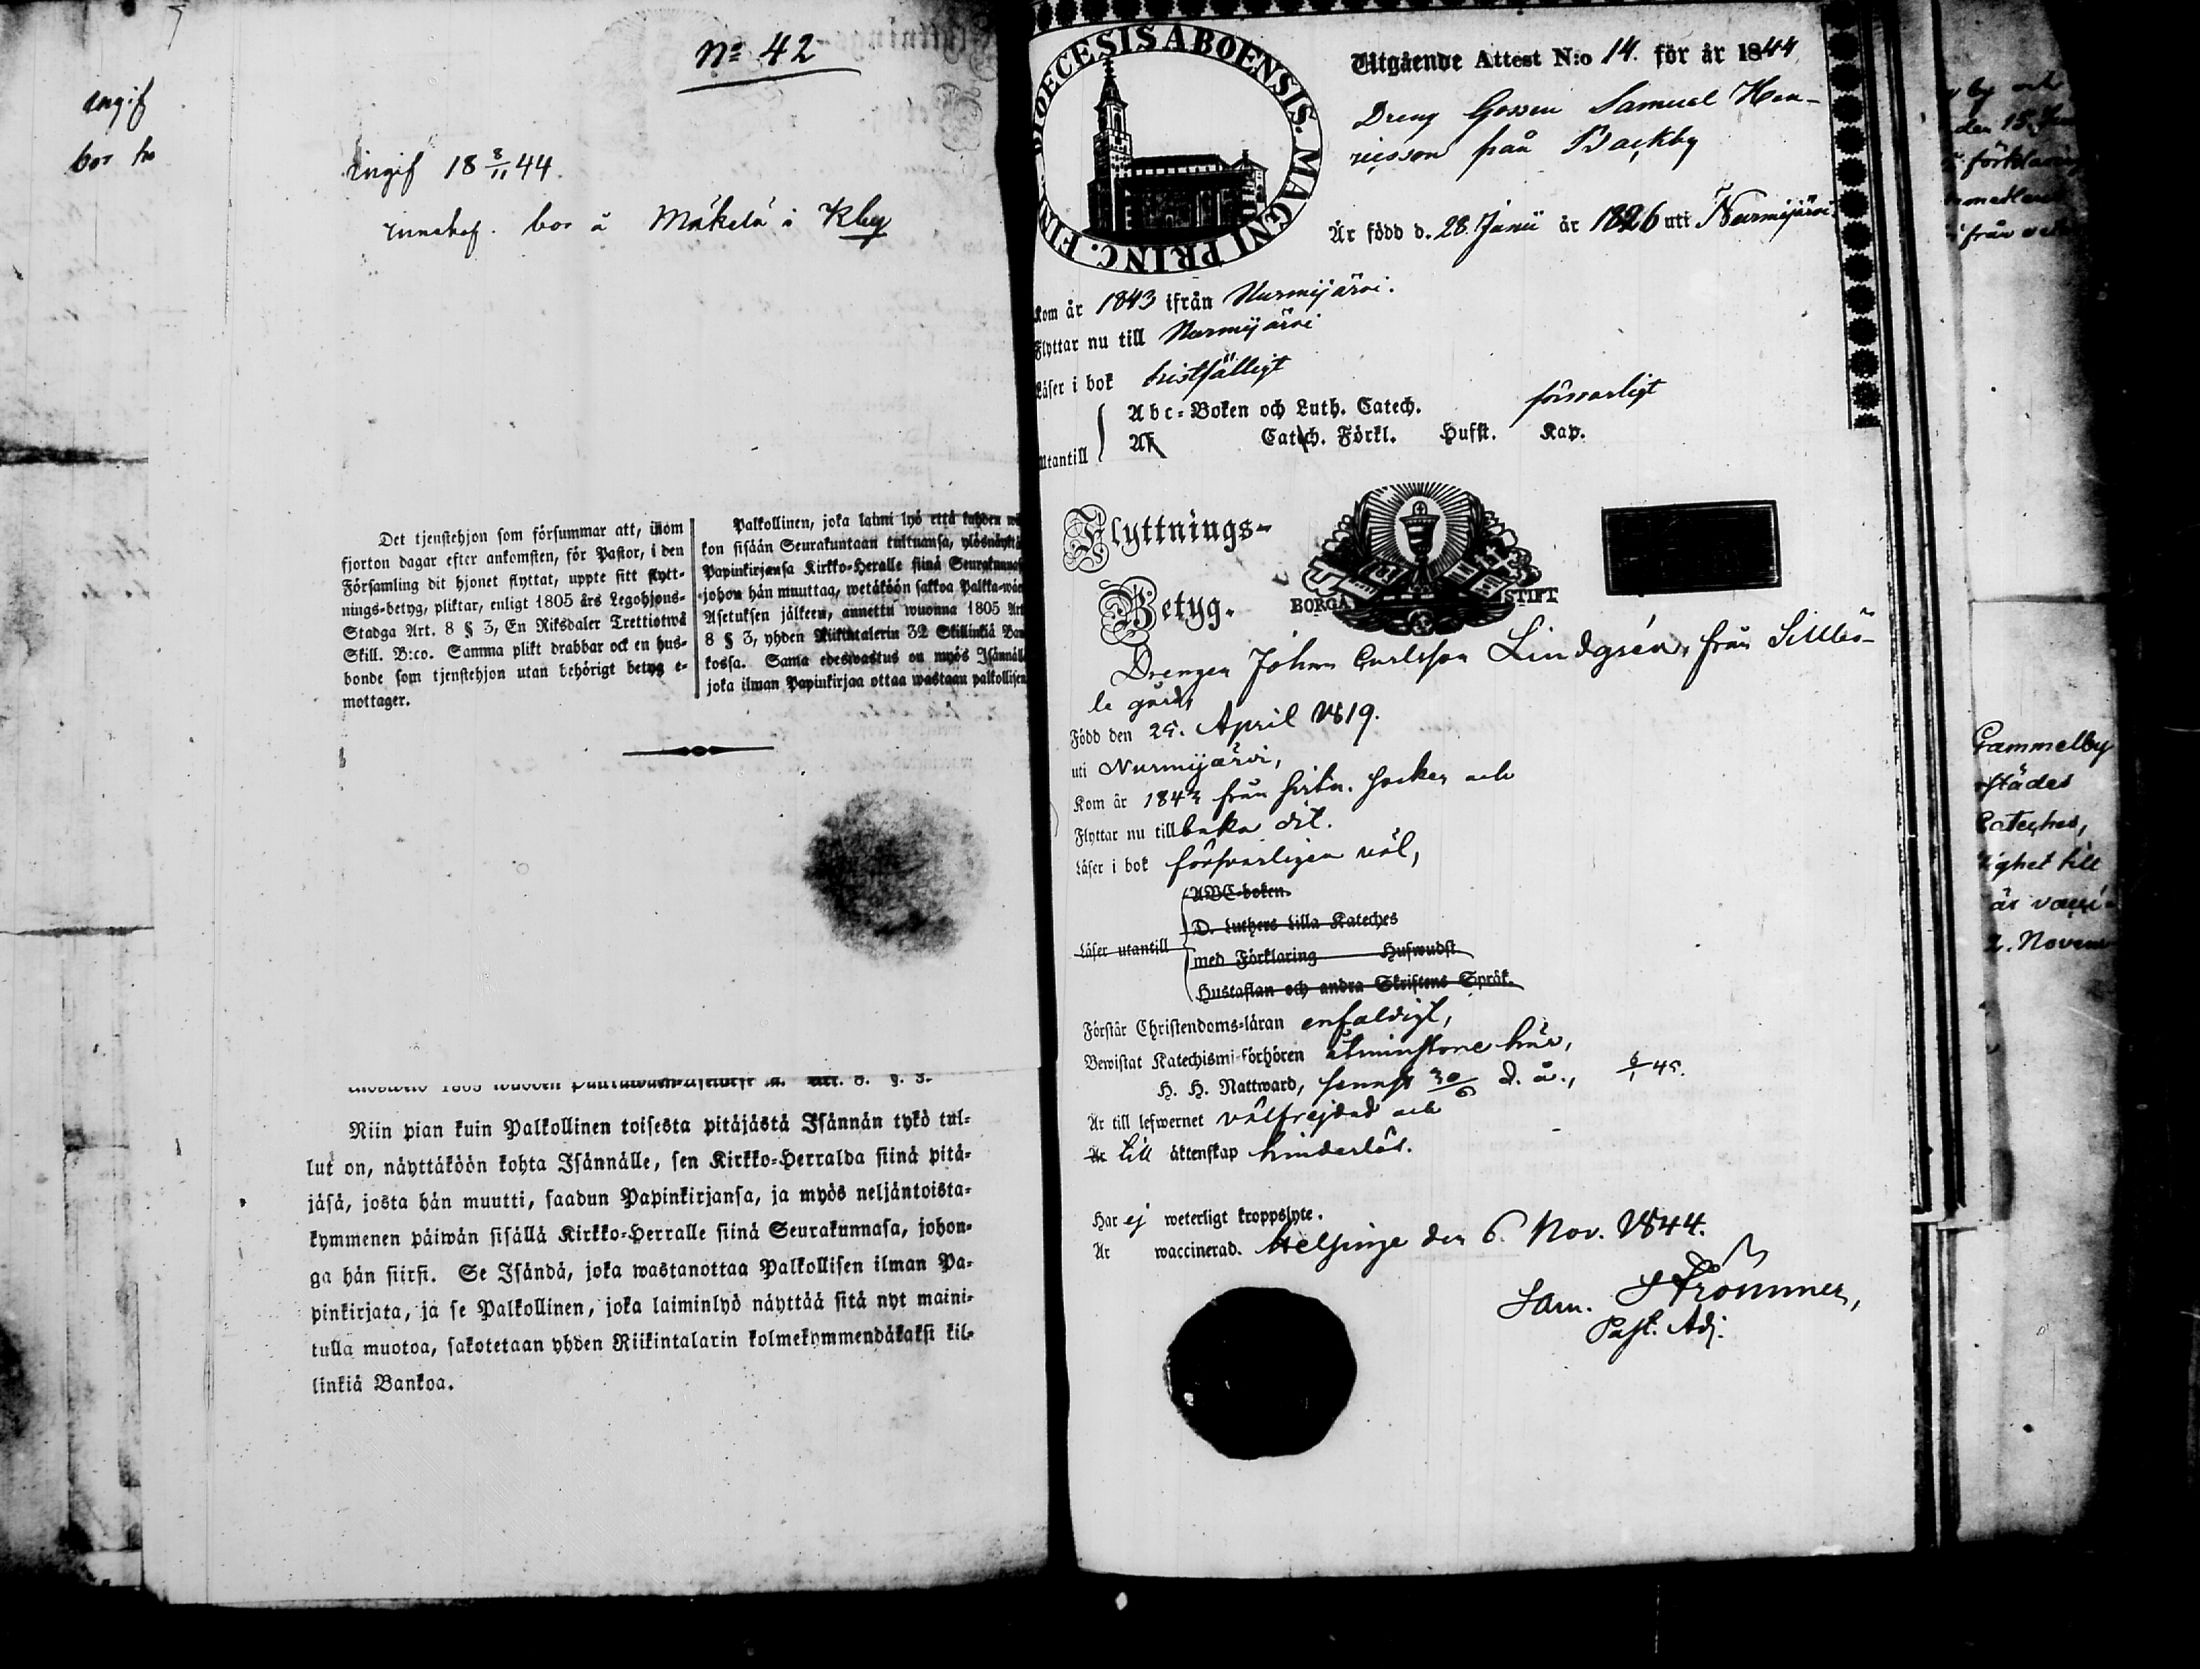 ingif
bor
No 42
Ingif 18 8/11 44.
bor å Mäkelä i Kby
Det tjenstehjon som försummar att, inom
fjorton dagar efter ankomsten, för Pastor, i den
Församling dit hjonet flyttat, uppte sitt flytt-
nings-betyg, pliktar, enligt 1805 års Legohjons-
Stadga Art. 8 § 3, En Riksdaler Trettiotwå
Skill. B:co. Samma plikt drabbar ock en hus-
bonde som tjenstehjon utan behörigt betyg e-
mottager.
Palkollinen, joka laimi lyö että kahden
kon sisään Seurakuntaan tultuansa, ylösnäyttä
Papinkirjansa Kirkko-Heralle siinä Seurakunnas
johon hän muuttaa, wetäköön sakkoa Palkka-wäe
Asetuksen jälkeen, annettu wuonna 1805 Art
8 § 3, yhden Riikintalerin 32 Skillinkiä Ban
kossa. Sama edeswastus on myös Isännäll
joka ilman Papinkirjaa ottaa wastaan palkollisen
Niin pian kuin Palkollinen toisesta pitäjästä Isännän tykö tul-
lut on, näyttäköön kohta Isännälle, sen Kirkko-Herralda siinä pitä-
jäsä, josta hän muutti, saadun Papinkirjansa, ja myös neljäntoista-
kymmenen päiwän sisällä Kirkko-Herralle siinä Seurakunnasa, johon-
ga hän siirsi. Se Isändä, joka wastanottaa Palkollisen ilman Pa-
pinkirjata, ja se Palkollinen, joka laiminlyö näyttää sitä nyt maini-
tulla muotoa, sakotetaan yhden Riikintalarin kolmekymmendäkaksi kil-
linkiä Bankoa.
DIOECESIS ABOENSIS. MAGNI PRINC. FIN
Utgående Attest N:o 14. för år 1844
Dreng Gossen Samuel Hen-
ricsson från Backby
Är född d. 28 Junii år 1826 uti Nurmijärvi
Kom år 1843 ifrån Nurmijärvi.
Flyttar nu till Nurmijärvi
Läser i bok bristfälligt
Abc-Boken och Luth. Catech. försvarligt
Catech. Förkl. Hufst. Kap.
Utantill
Flyttnings-
Betyg.
BORGÅ STIFT
Drengen Johan Carlsson Lindgrén, från Sillbö-
le gård,
Född den 25. April 1819.
uti Nurmijärvi,
Kom år 1843 från socken och
Flyttar nu tillbaka dit.
Läser i bok försvarligen väl,
ABC-boken.
D. Luthers Lilla Kateches
Läser utantill
med Förklaring Huswudst
Hustaflan och andra Skriftens Språk.
Förstår Christendoms-läran enfaldigt,
Bewistat Katechismi-förhören åtminstone här,
H. H. Nattward, senast 30/6 d. å., 6/1 45.
Är till lefwernet välfrejdad och
Är till äktenskap hinderlös.
Har ej weterligt kroppslyte.
Är waccinerad. Helsinge den 6. Nov. 1844.
Sam. Strömmer,
Past. Adj.
den 15
från
Gammelby
städes
Cateches,
lighet till
är vacci-
2. Novem